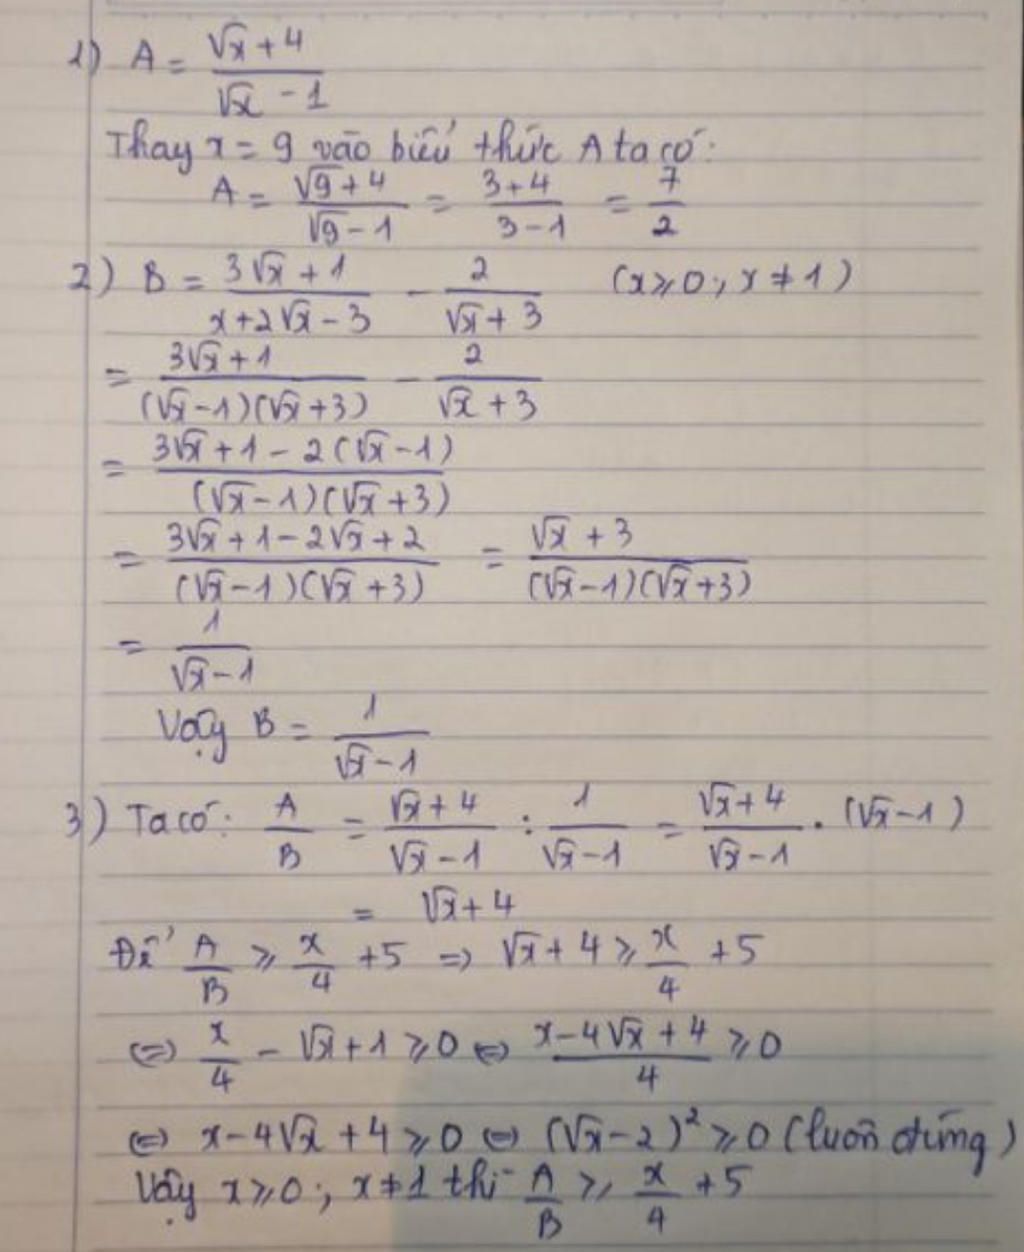 1) A = (√x + 4)/(√x - 1)
Thay x = 9 vào biểu thức A ta có:
A = (√9 + 4)/(√9 - 1) = (3+4)/(3-1) = 7/2
2) B = (3√x + 1)/(x + 2√x - 3) - 2/(√x + 3) (x ⩾ 0; x ≠ 1)
= (3√x + 1)/((√x - 1)(√x + 3)) - 2/(√x + 3)
= (3√x + 1 - 2(√x - 1))/((√x - 1)(√x + 3))
= (3√x + 1 - 2√x + 2)/((√x - 1)(√x + 3)) = (√x + 3)/((√x - 1)(√x + 3))
= 1/(√x - 1)
Vậy B = 1/(√x - 1)
3) Ta có: A/B = (√x + 4)/(√x - 1) : 1/(√x - 1) = (√x + 4)/(√x - 1) . (√x - 1)
= √x + 4
Để A/B ⩾ x/4 + 5 => √x + 4 ⩾ x/4 + 5
<=> x/4 - √x + 1 ⩾ 0 <=> (x - 4√x + 4)/4 ⩾ 0
<=> x - 4√x + 4 ⩾ 0 <=> (√x - 2)² ⩾ 0 (luôn đúng)
Vậy x ⩾ 0; x ≠ 1 thì A/B ⩾ x/4 + 5